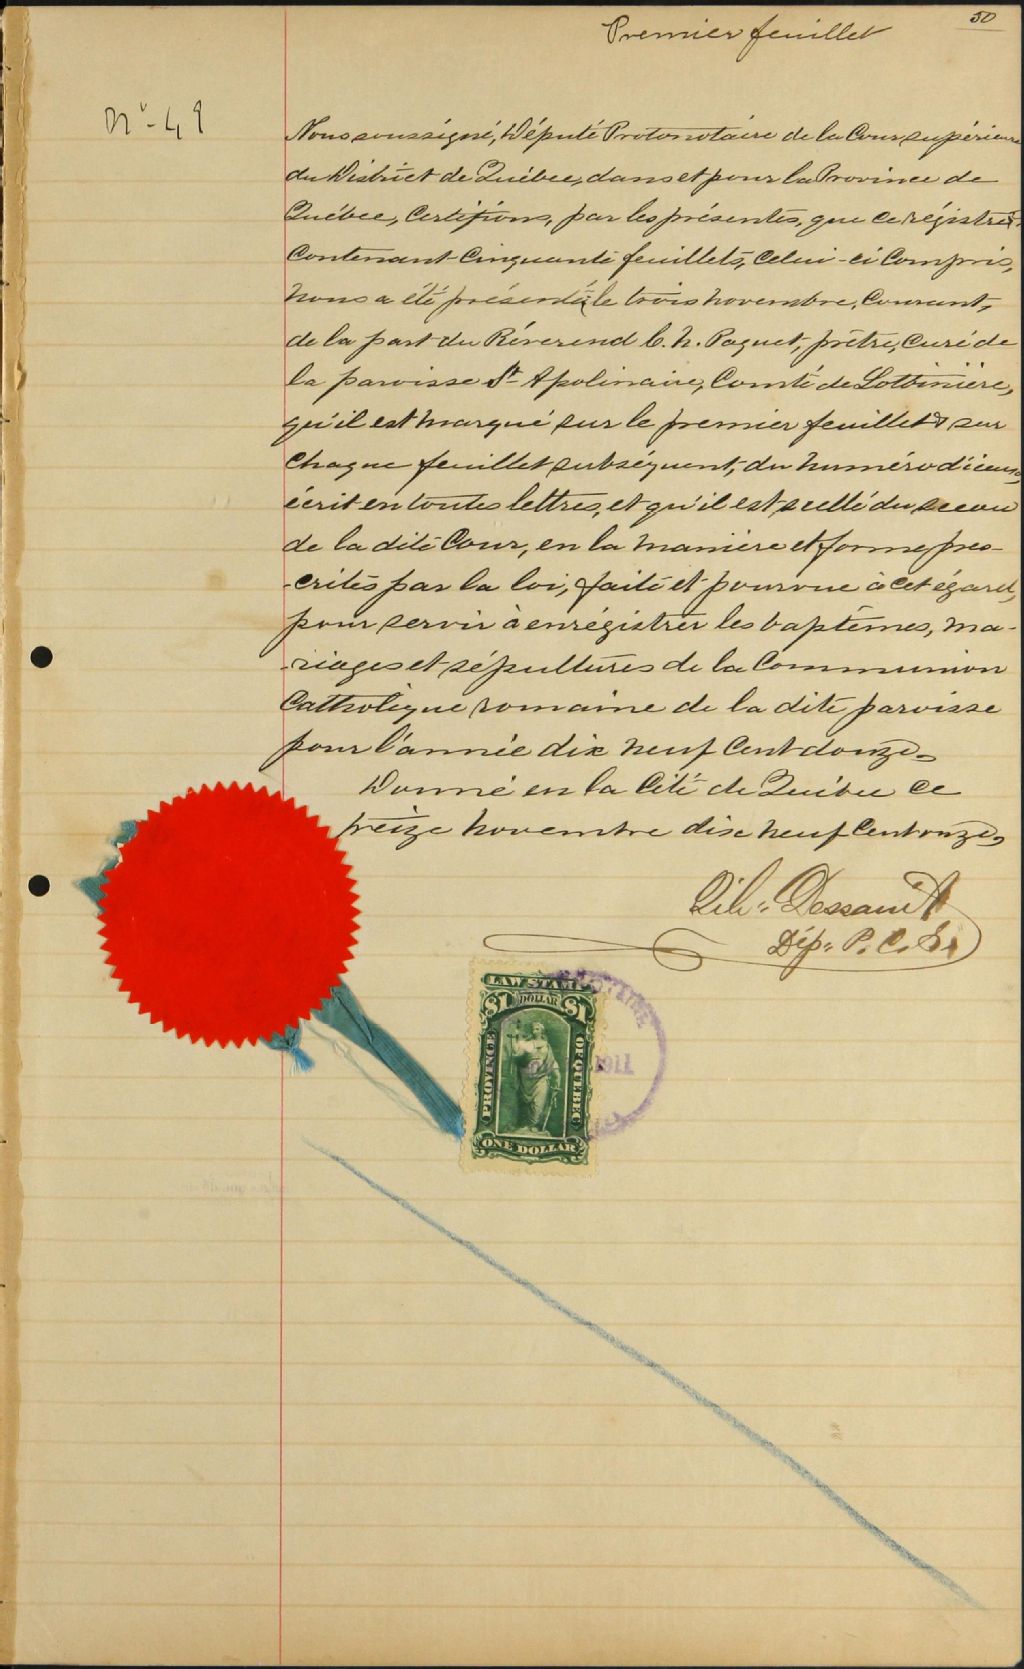 50
Premier feuillet
No - 49
Nous soussigné, Député Protonotaire de la Cour supérieure
du District de Québec, dans et pour la Province de
Québec, Certifions, par les présentes, que ce régistre
contenant cinquante feuillets, celui-ci compris,
nous a été présenté le trois novembre, courant,
de la part du Révérend C. N. Paquet, prêtre, curé de
la paroisse St Apolinaire, Comté de Lotbinière,
qu'il est marqué sur le premier feuillet & sur
chaque feuillet subséquent, du numéro d'iceux,
écrit en toutes lettres, et qu'il est scellé du sceau
de la dite Cour, en la manière et forme pres-
-crites par la loi, faite et pourvue à cet égard,
pour servir à enrégistrer les baptêmes, ma-
-riages et sépultures de la Communion
Catholique romaine de la dite paroisse
pour l'année dix neuf cent douze.
Donné en la Cité de Québec ce
treize novembre dix neuf cent onze.
Dessault
Dép. P. C. S.
LAW STAMP
$1 DOLLAR $1
PROVINCE OF QUEBEC
ONE DOLLAR
1911